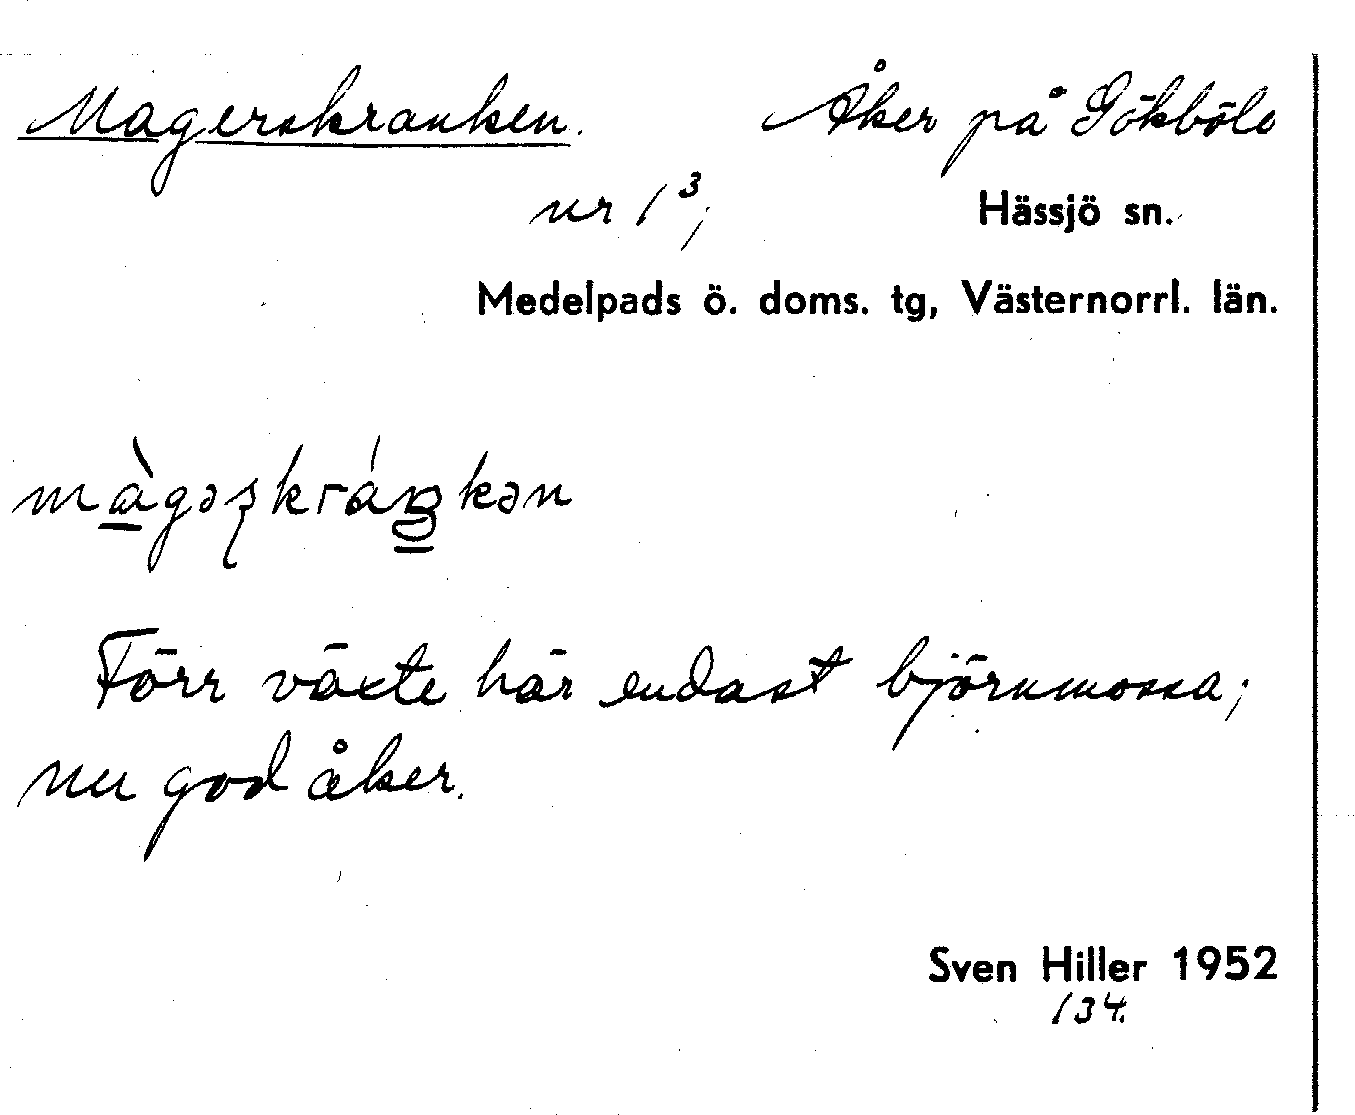 Magerskranken. Åker på Gökböle
nr 1³;
Hässjö sn.
Medelpads ö. doms. tg, Västernorrl. län.
màgəʂkráŋkən
Förr växte här endast björnmossa;
nu god åker.
Sven Hiller 1952
134.